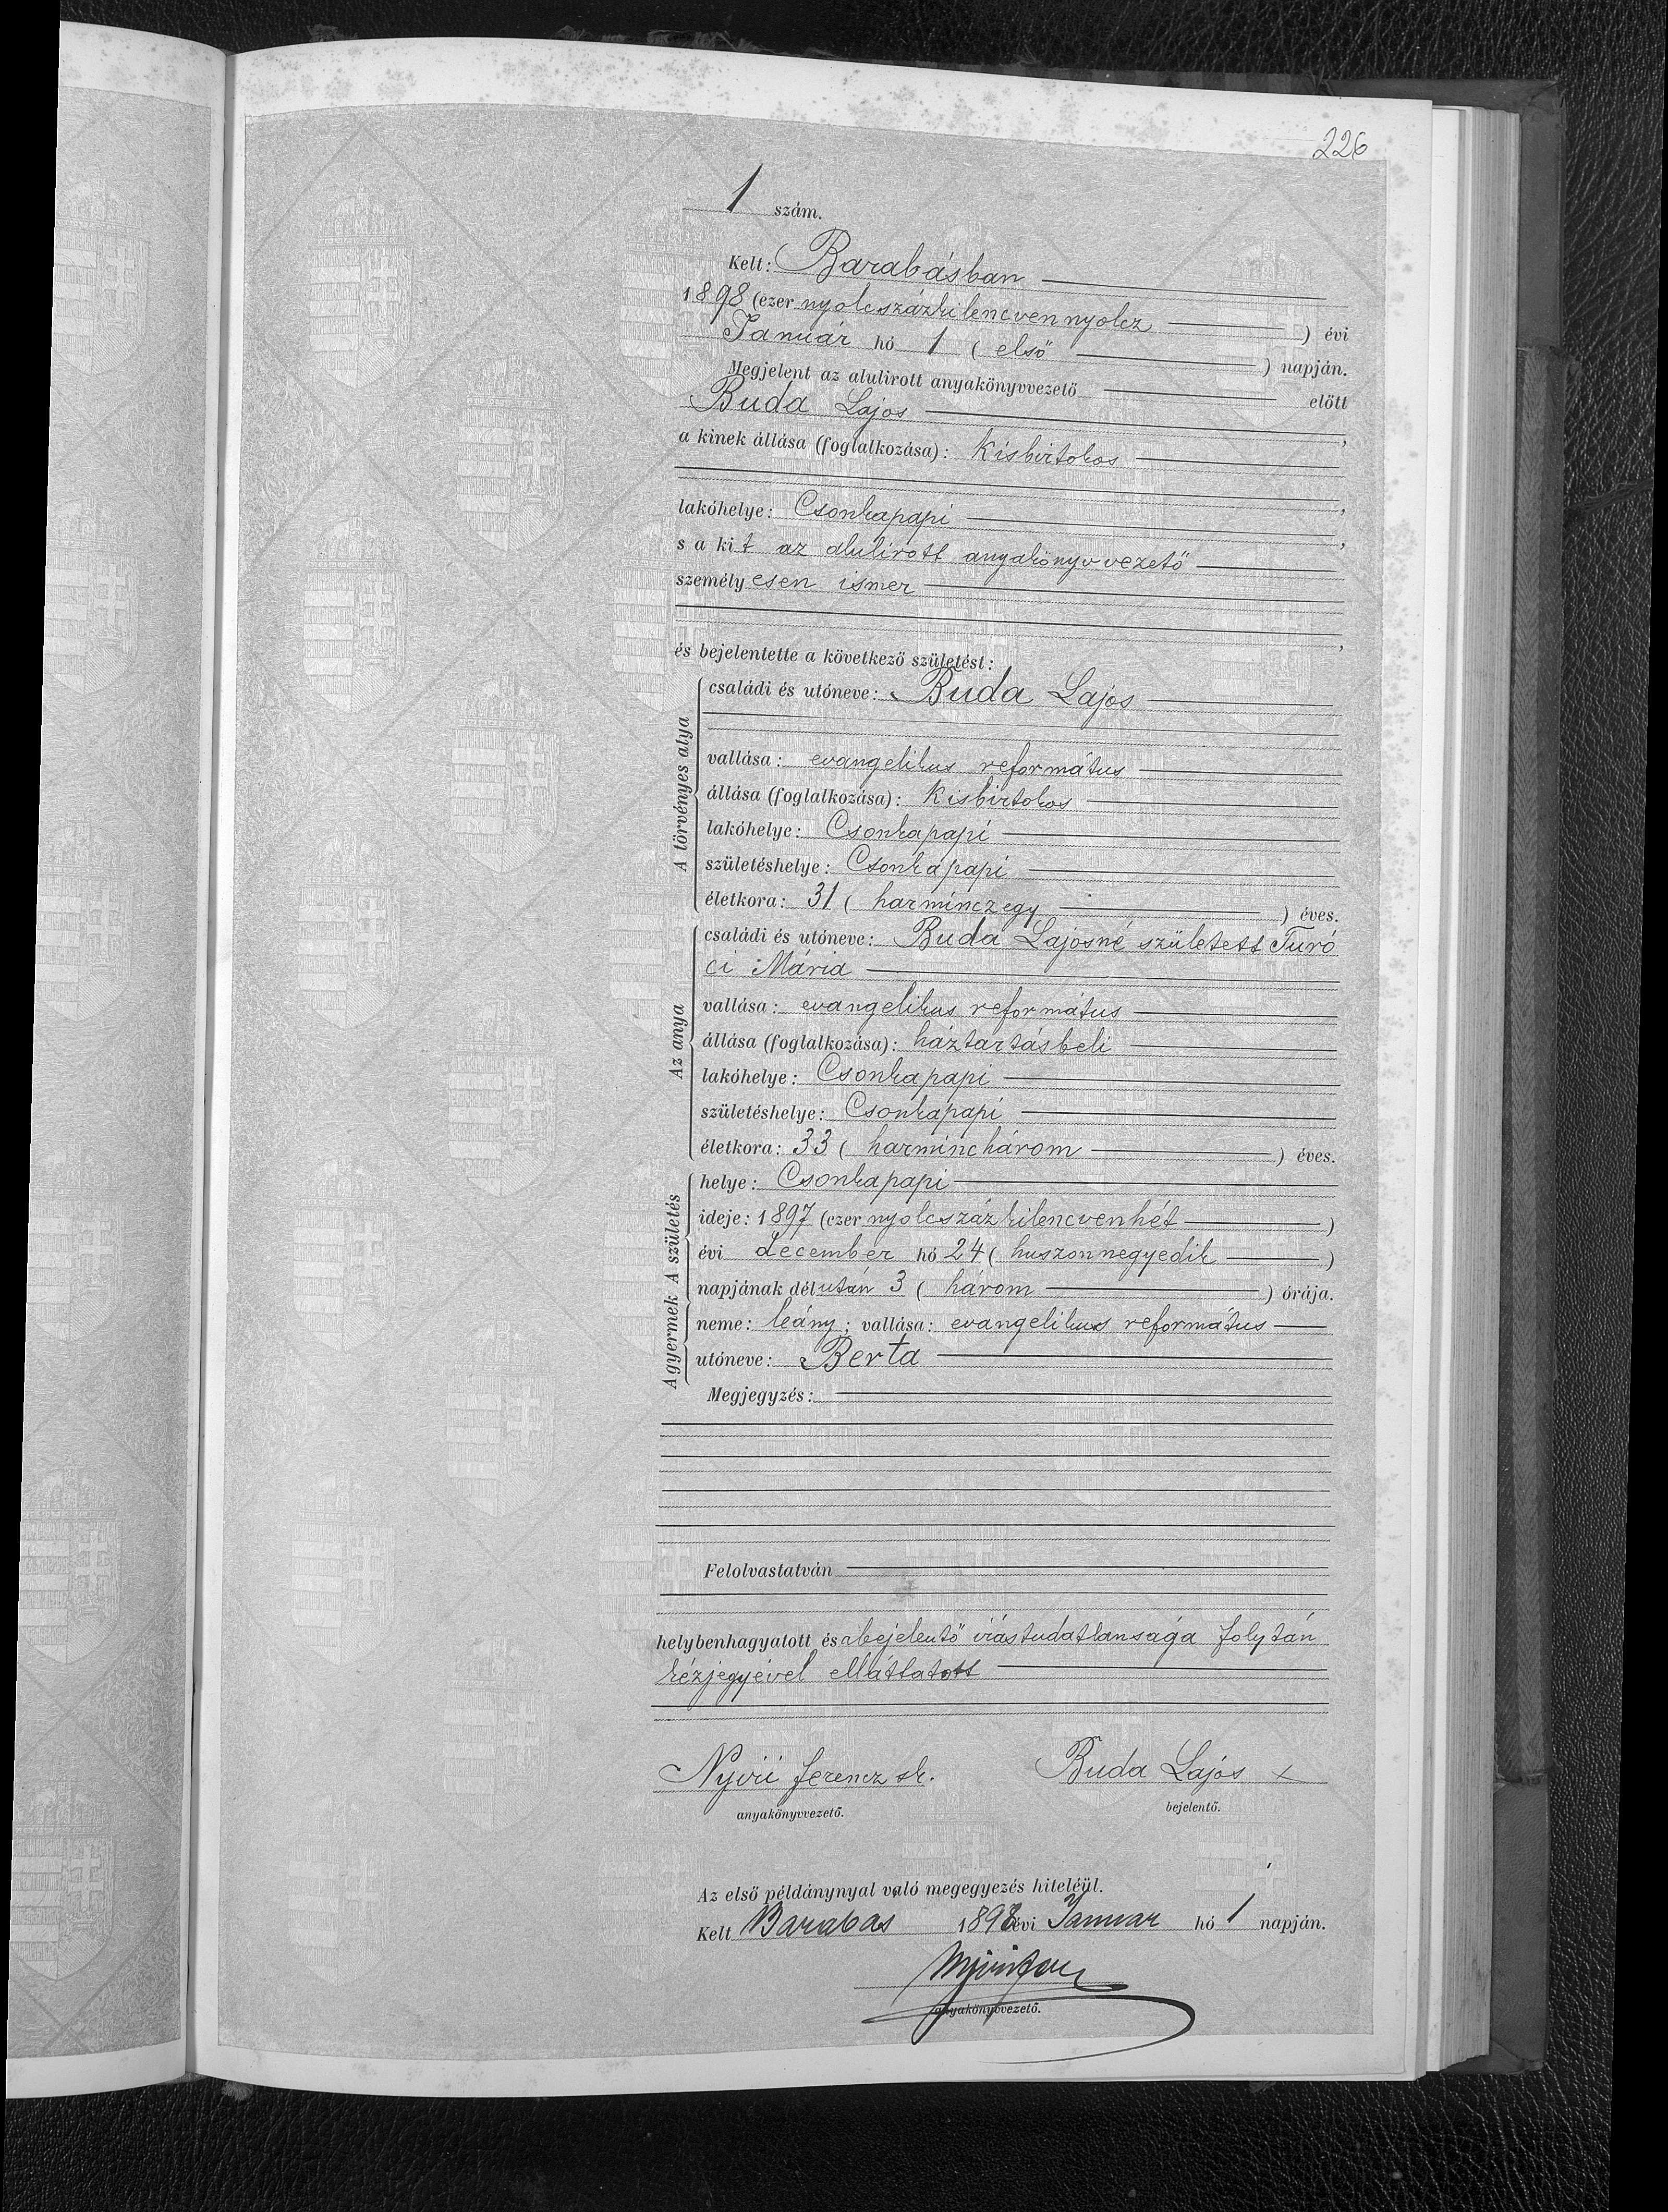 226
1 szám.
Kelt: Barabásban
1898 (ezer nyolcszázkilencvennyolcz ) évi
Január hó 1 ( első ) napján.
Megjelent az alulirott anyakönyvvezető előtt
Buda Lajos ,
a kinek állása (foglalkozása): Kisbirtokos
,
lakóhelye: Csonkapapi ,
s a kit az alulirott anyakönyvvezető
személyesen ismer
,
és bejelentette a következő születést:
A törvényes atya
családi és utóneve: Buda Lajos
vallása: evangelikus református
állása (foglalkozása): Kisbirtokos
lakóhelye: Csonkapapi
születéshelye: Csonkapapi
életkora: 31 ( harminczegy ) éves.
Az anya
családi és utóneve: Buda Lajosné született Turó
ci Mária
vallása: evangelikus református
állása (foglalkozása): háztartásbeli
lakóhelye: Csonkapapi
születéshelye: Csonkapapi
életkora: 33 ( harminchárom ) éves.
A születés
helye: Csonkapapi
ideje: 1897 (ezer nyolcszázkilencvenhét )
évi December hó 24 ( huszonnegyedik )
napjának délután 3 ( három ) órája.
A gyermek
neme: leány; vallása: evangelikus református
utóneve: Berta
Megjegyzés:
Felolvastatván
helybenhagyatott és abejelentő irástudatlansága folytán
kézjegyével elláttatott
Nyiri Ferencz sk. Buda Lajos x
anyakönyvvezető. bejelentő.
Az első példánynyal való megegyezés hiteléül.
Kelt Barabas 1898 évi Januar hó 1 napján.
anyakönyvvezető.